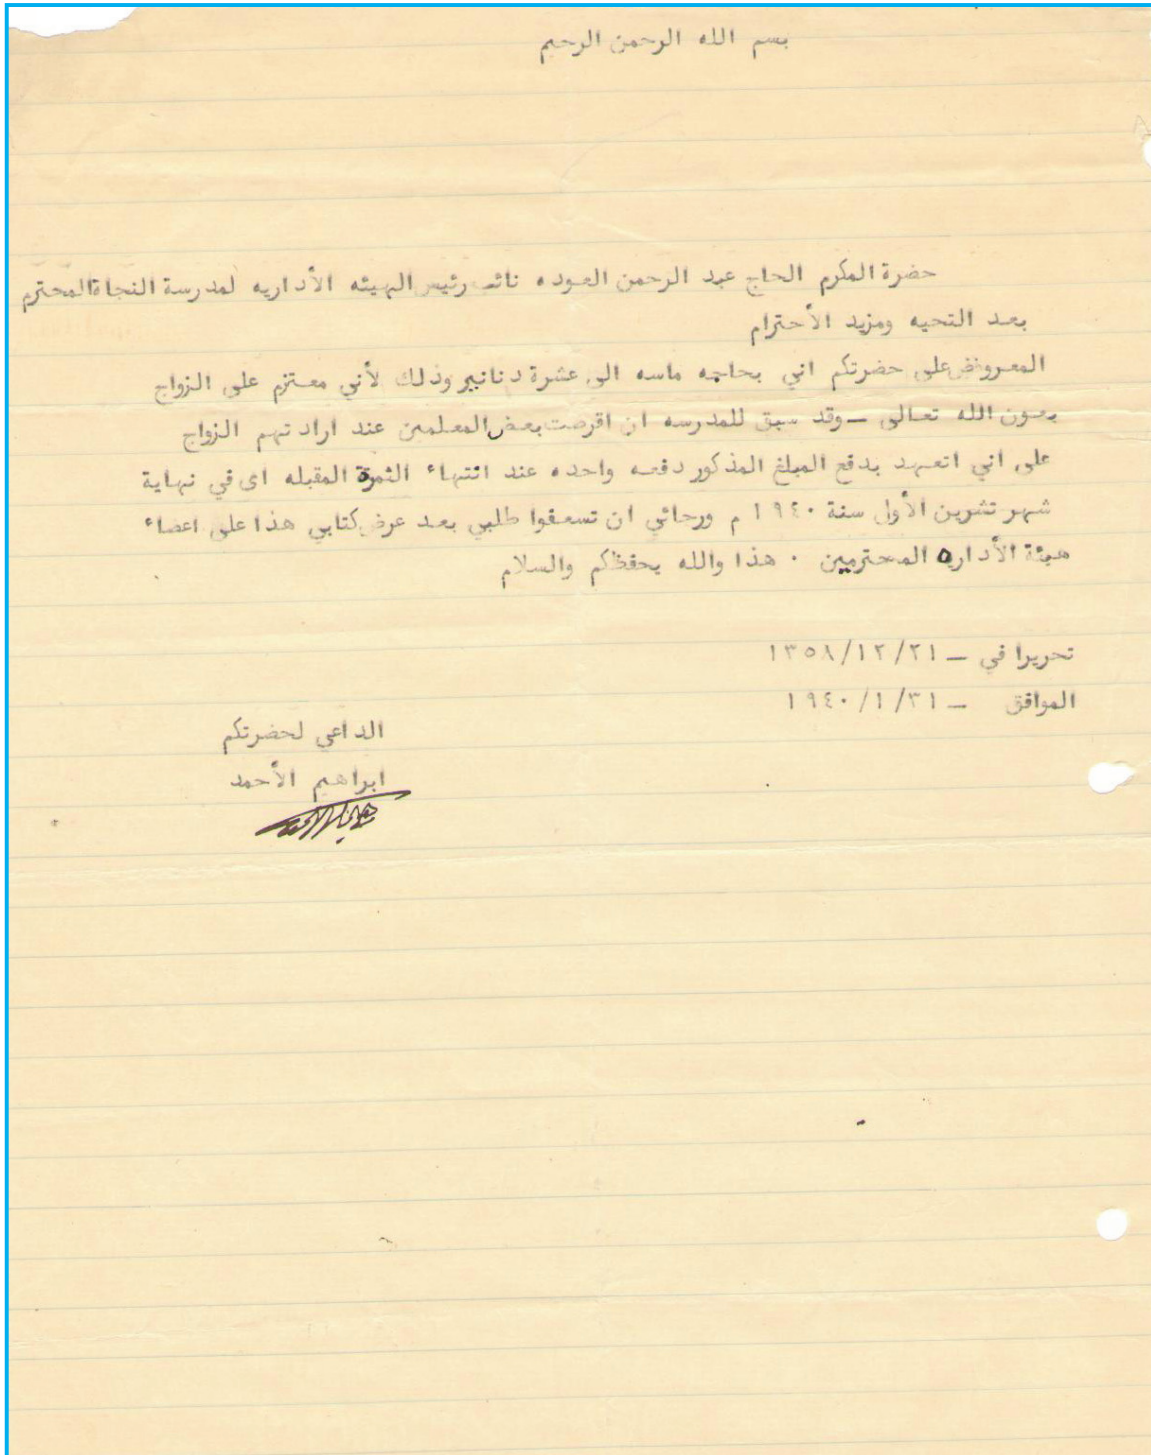 بسم الله الرحمن الرحيم
حضرة المكرم الحاج عبد الرحمن العوده نائب رئيس الهيئه الأداريه لمدرسة النجاة المحترم
بعد التحيه ومزيد الأحترام
المعروض على حضرتكم اني بحاجه ماسه الى عشرة دنانير وذلك لأني معتزم على الزواج
بعون الله تعالى ــ وقد سبق للمدرسه ان اقرضت بعض المعلمين عند ارادتهم الزواج
على اني اتعهد بدفع المبلغ المذكور دفعه واحده عند انتهاء الثمرة المقبله اى في نهاية
شهر تشرين الأول سنة ١٩٤٠ م ورجائي ان تسعفوا طلبي بعد عرض كتابي هذا على اعضاء
هيئة الأداره المحترمين . هذا والله يحفظكم والسلام
تحريرا في ــ ١٣٥٨/١٢/٢١
الموافق ــ ١٩٤٠/١/٣١
الداعي لحضرتكم
ابراهيم الأحمد